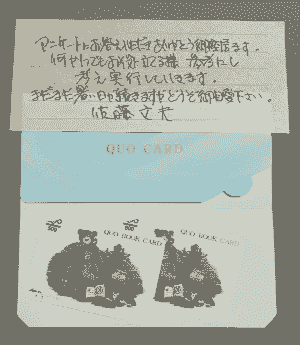 アンケートにお答えいただきありがとう御座居ます。
何かとてもお役に立てる様 参考にし
考え実行していきます。
まだまだ暑い日が続きますがどうぞ御自愛下さい。
佐藤文夫
QUO CARD
500
QUO BOOK CARD
500
QUO BOOK CARD